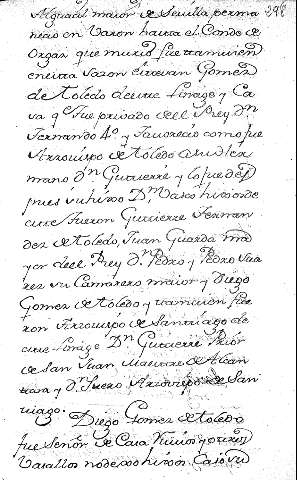 298
Alguacil maior de Sevilla perma
necio en Varon hasta el Conde de
Orgaz que murio fue tamuien
en esta sazon Estevan Gomez
de Toledo de este Linage y Ca
sa que fue privado del Rey Dn
Fernando 4º y favorecio como fue
Arzouispo de Toledo a su Her
mano Dn Gutierre y lo que des
pues su hixo Dn Vasco hixos de
este fueron Gutierre Fernan
dez de Toledo, Juan Guarda ma
yor del Rey Dn Pedro y Pedro Sua
rez su Camarero maior y Diego
Gomez de Toledo y tamuien fue
ron Arzouispo de Santiago de
este Linage Dn Gutierre Prior
de San Juan Maestre de Alcan
tara y Dn Suero Arzouispo de San
tiago.
Diego Gomez de Toledo
fue Señor de Casa Ruuios y otros
Vasallos no dexo hixos. Caso su